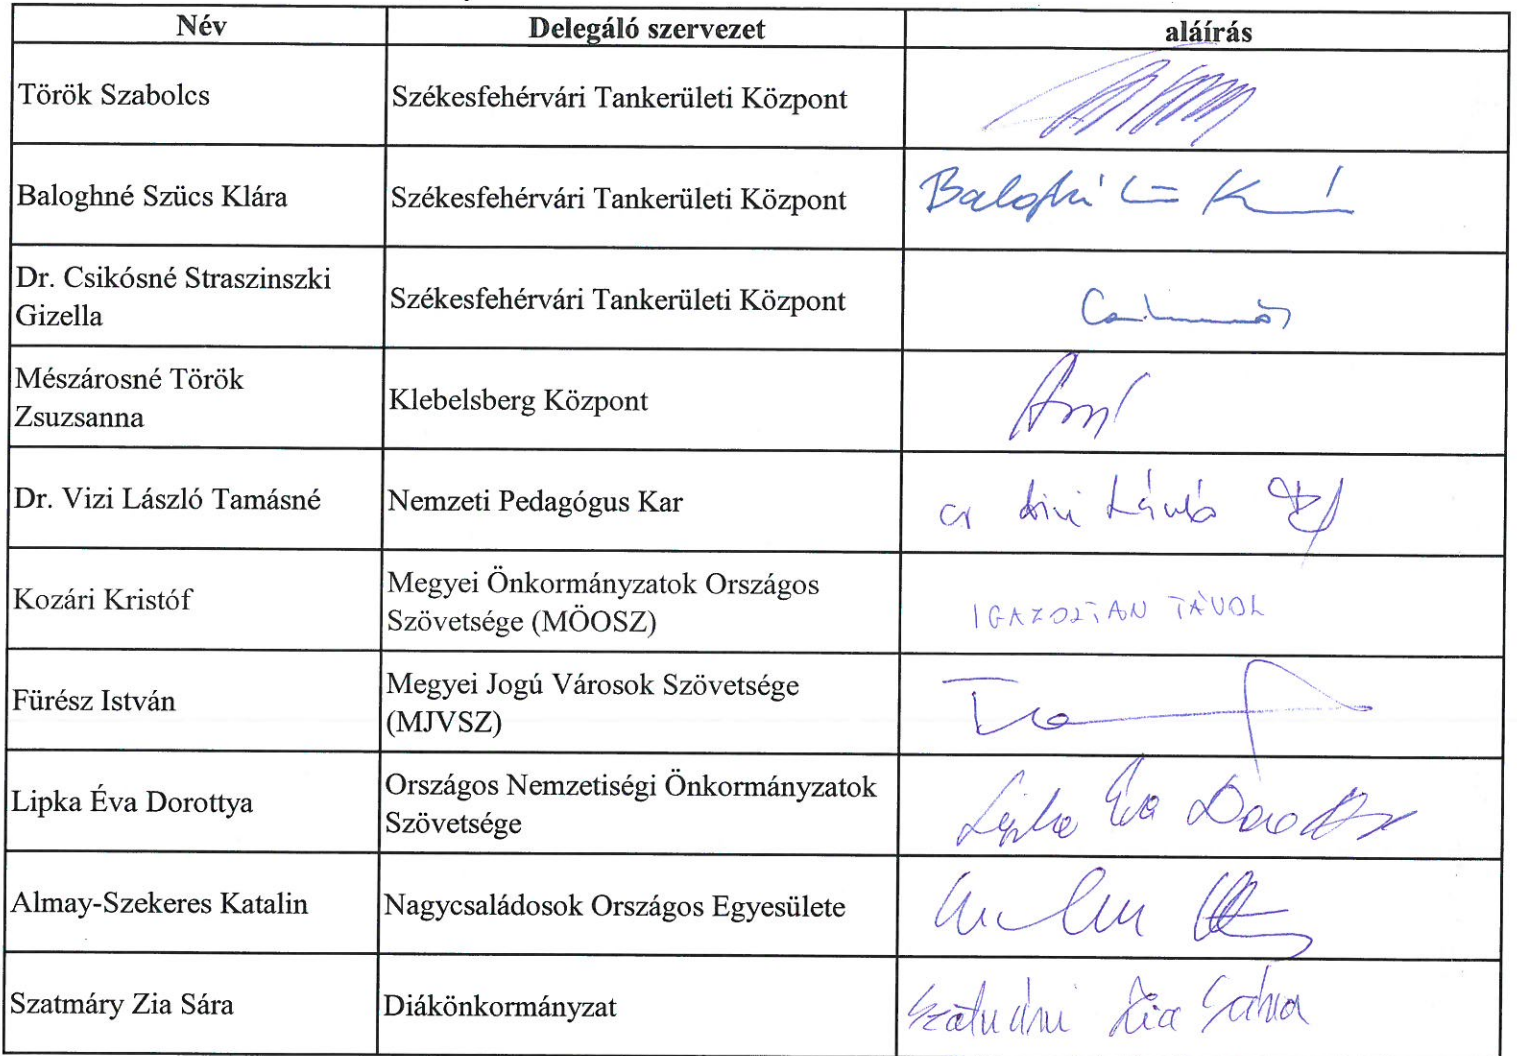 Név Delegáló szervezet aláírás
Török Szabolcs Székesfehérvári Tankerületi Központ
Baloghné Szücs Klára Székesfehérvári Tankerületi Központ
Dr. Csikósné Straszinszki
Gizella
Székesfehérvári Tankerületi Központ
Mészárosné Török
Zsuzsanna
Klebelsberg Központ
Dr. Vizi László Tamásné Nemzeti Pedagógus Kar
Kozári Kristóf
Megyei Önkormányzatok Országos
Szövetsége (MÖOSZ)
IGAZOLTAN TÁVOL
Fürész István
Megyei Jogú Városok Szövetsége
(MJVSZ)
Lipka Éva Dorottya
Országos Nemzetiségi Önkormányzatok
Szövetsége
Lipka Éva
Almay-Szekeres Katalin Nagycsaládosok Országos Egyesülete
Szatmáry Zia Sára Diákönkormányzat Zia Sára